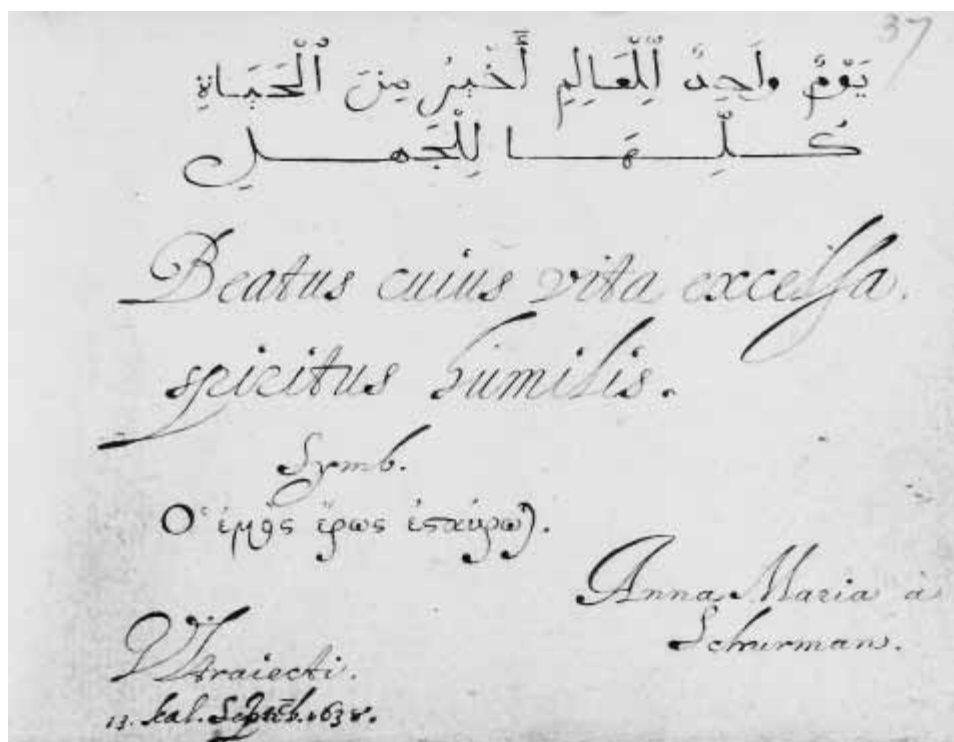 37
يَوْمٌ وَاحِدٌ لِلْعَالِمِ أَخْيَرُ مِنَ ٱلْحَيَاةِ
كُلِّهَا لِلْجَهِلِ
Beatus cuius vita excelsa.
spiritus humilis.
Symb.
Ὁ ἐμὸς ἔρως ἐσταύρωται.
Anna Maria à
Schurman.
Vltraiecti.
13. kal. Septēb. 1638.